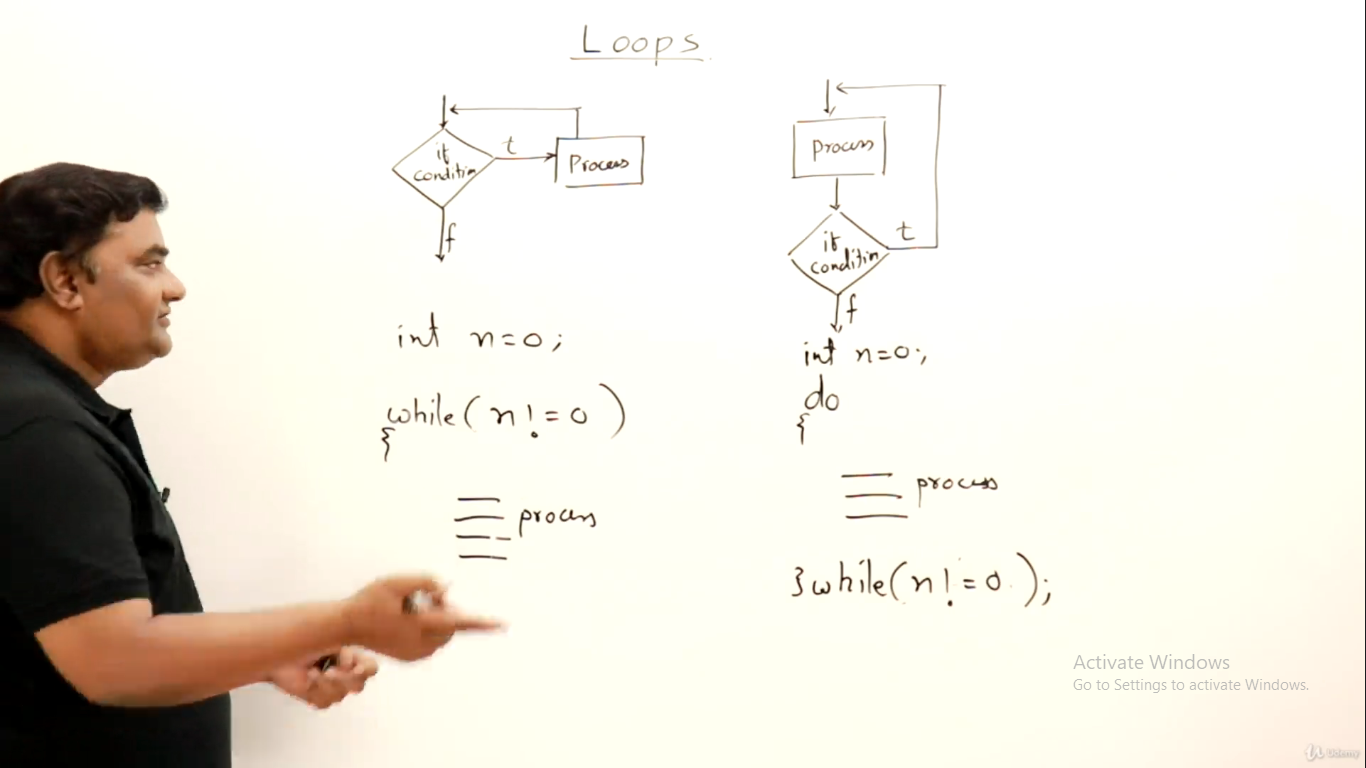 Loops
if
condition
t
Process
f
int n=0;
while(n!=0)
{
process
Process
if
condition
t
f
int n=0;
do
{
process
}while(n!=0);
Activate Windows
Go to Settings to activate Windows.
Udemy